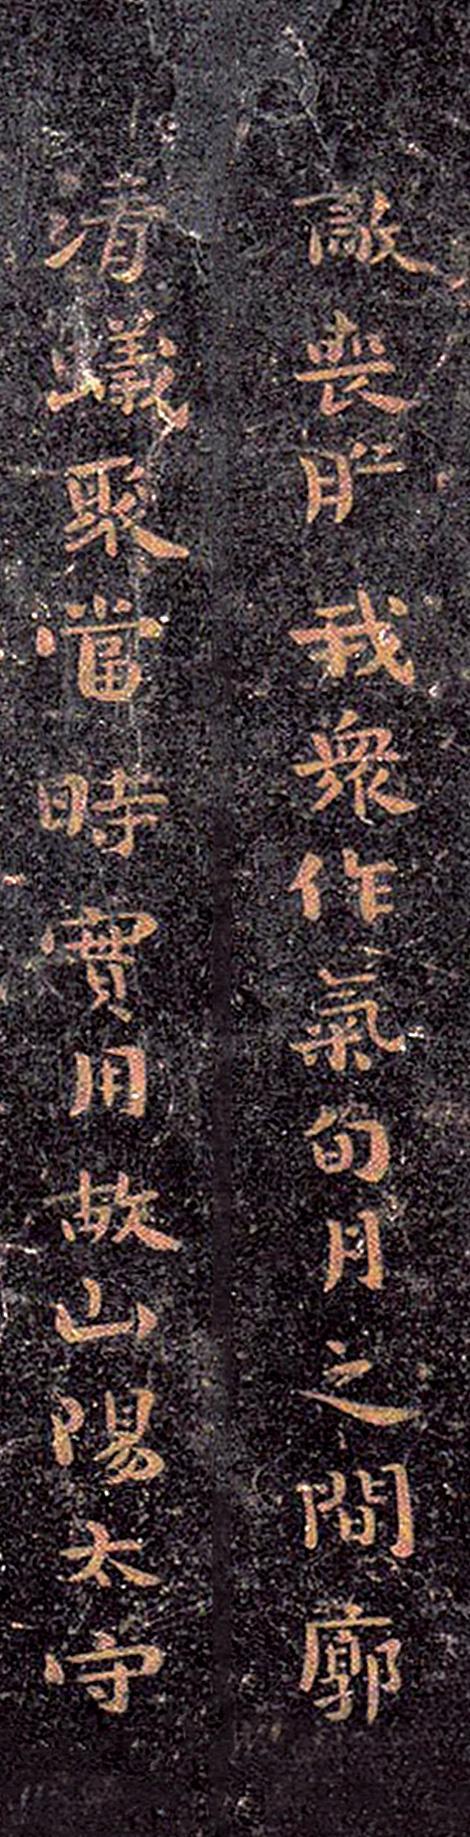 敵喪膽我衆作氣旬月之間廓
清蟻聚當時實用故山陽太守